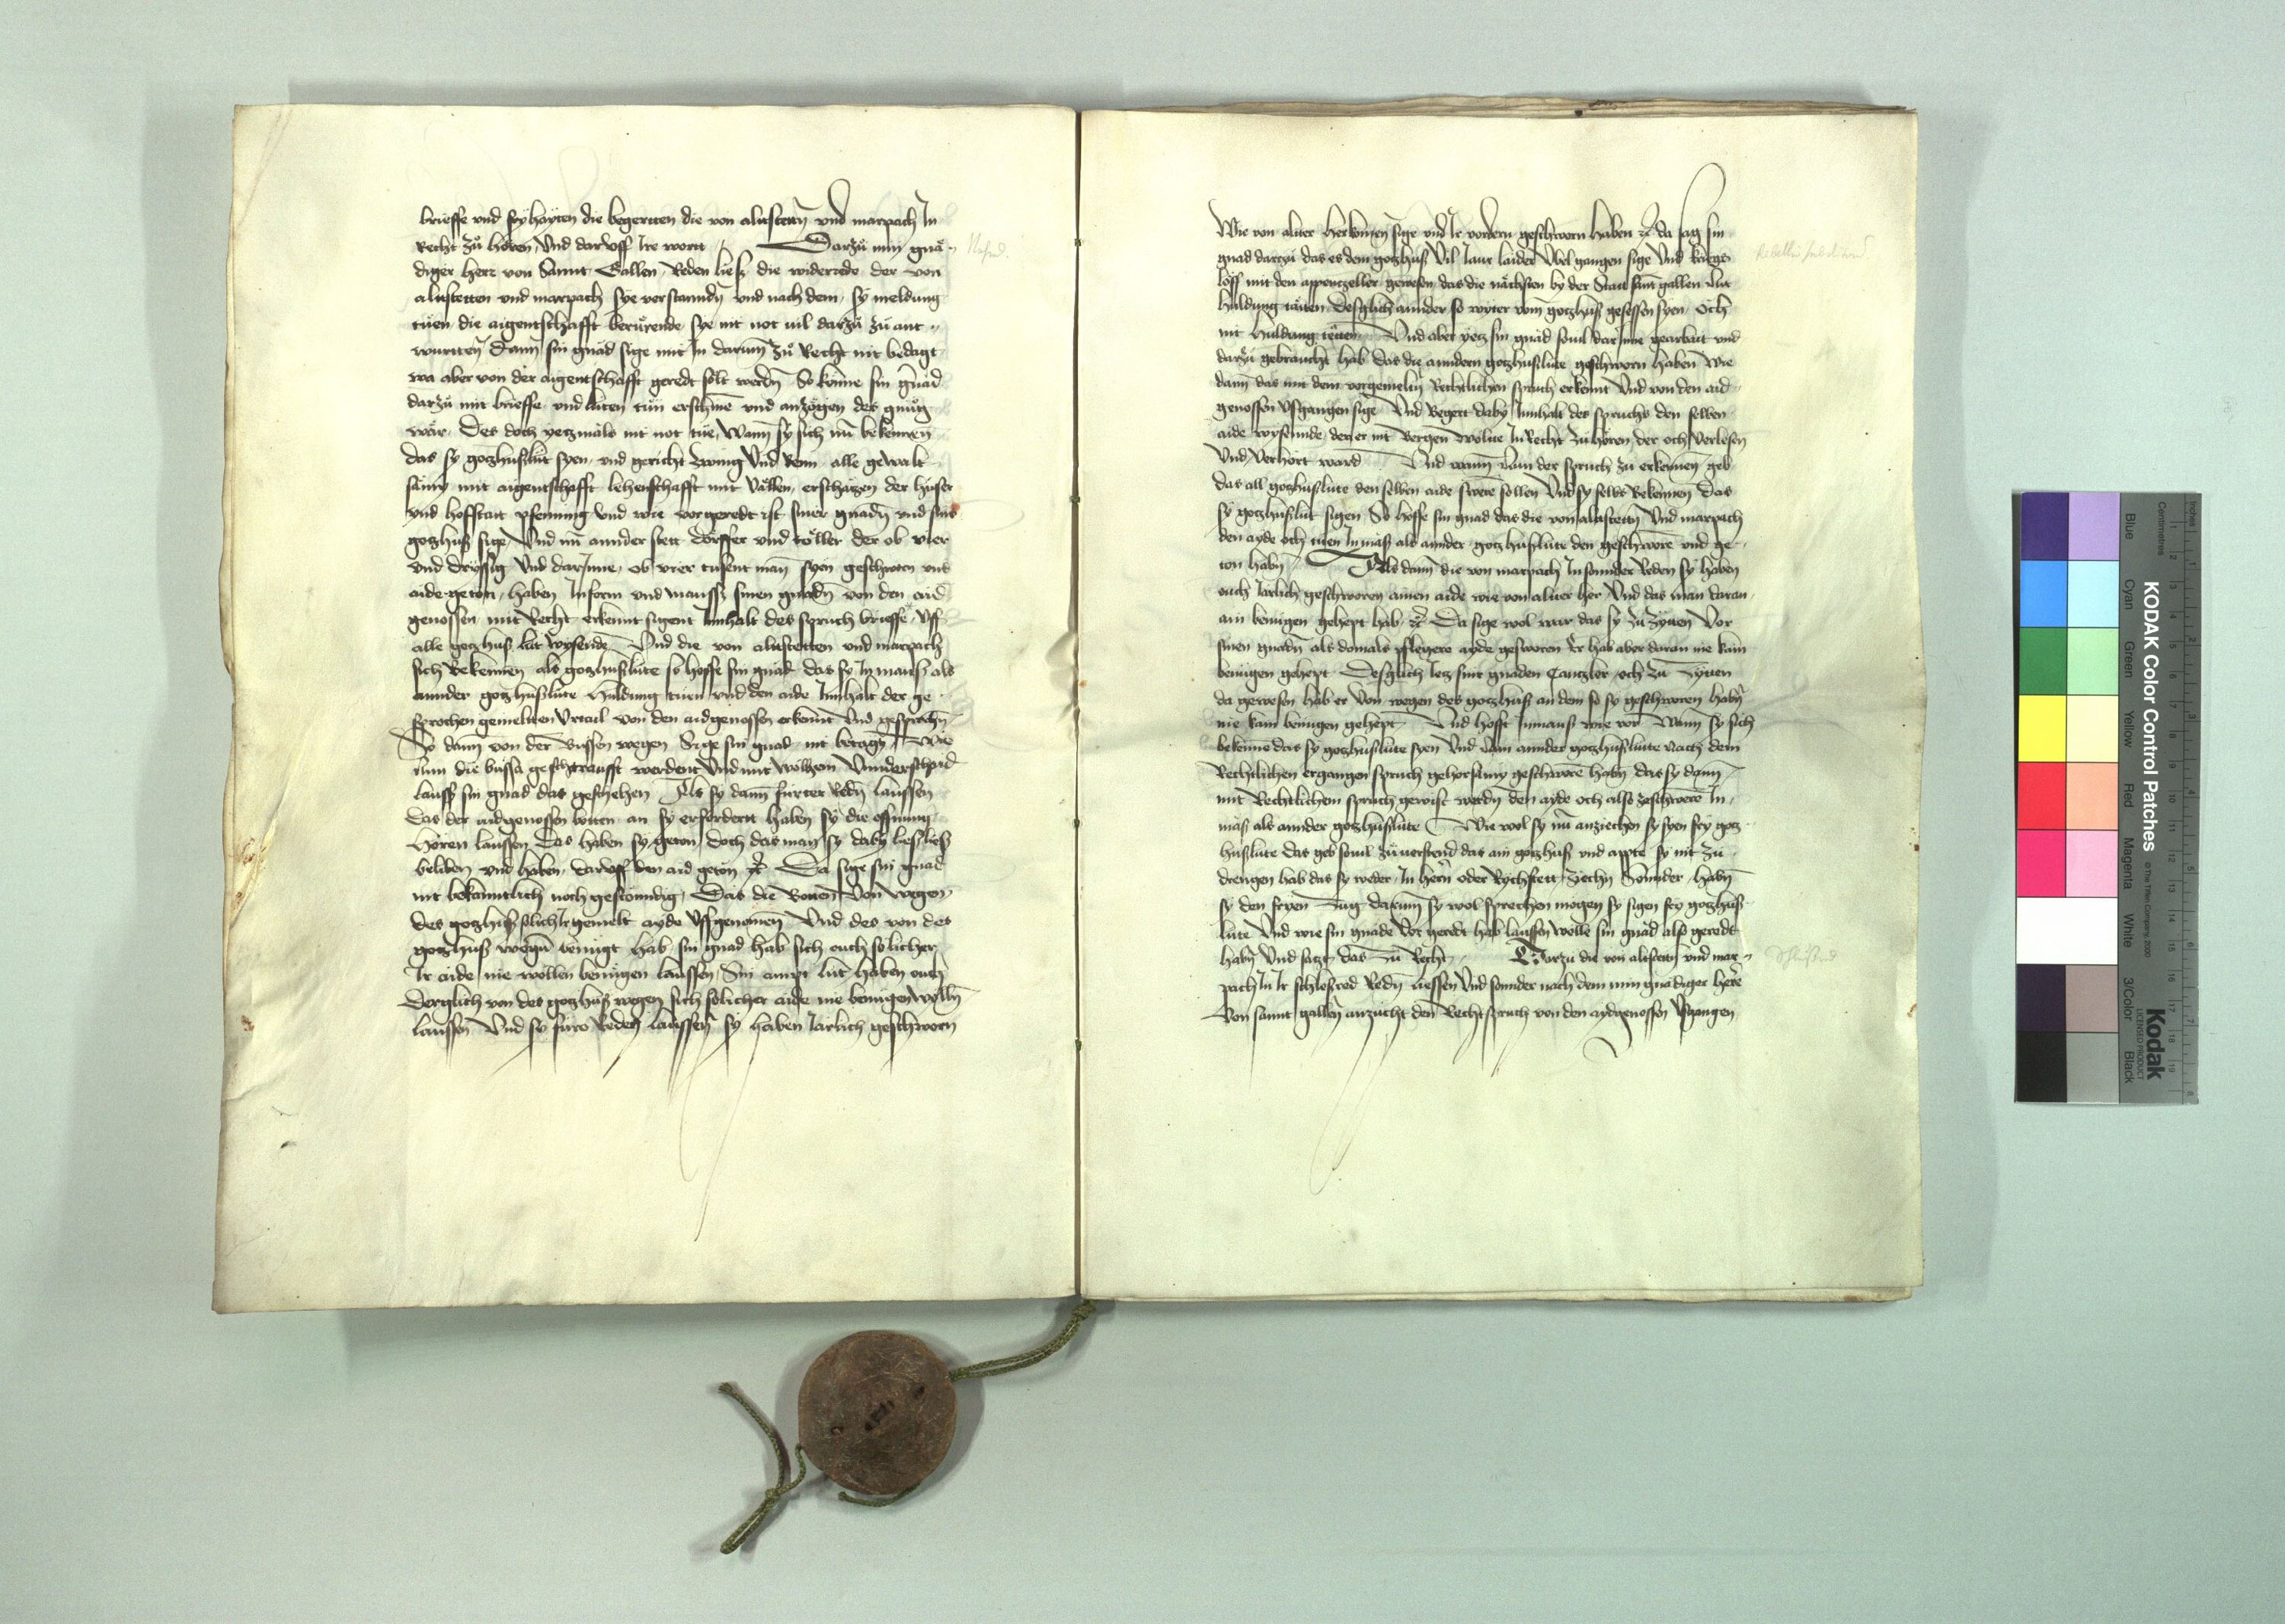 brieffe und fryhayten die begertten die von altstettn̄ und marpach In
Recht zů hören, Und daruff Ire wortt Darzů min gnä-
diger herr von Sannt Gallen, Reden ließ die widerrede der von
altstetten und marpach sye verstanndn̄ und nach dem, sy meldung
tüen die aigentschafft berürende sye nit not vil darzů zů ant-
wurtten̄ Dann̄ sin gnad sige mit In darum̄ zů Recht nit bedagt
wa aber von der aigentschafft geredt sölt werdn̄ So könne sin gnäd
darzů mit brieffe und lüten tůn erschine und anzögen des gnůg
wär. Des doch yetzmäls nit not tüe, Wann̄ sy sich nū bekennen
das sy gotzhußlüt syen, und gericht zwing Und Benn, alle gewalt
samy mit aigentschafft lehenschafft mit Vällen, erschätzen der hüser
und hoffstatt pfenning und wie vorgeredt ist siner gnadn̄ und sins
gotzhuß sige, Und nū annder stett dörffer und töller der ob vier
und dryssig Und darInne, ob vier tusent man̄ syen geschworn und
aide geton, haben Inform und maussz sinen gnadn̄ von den aid
genossen, mit Recht erkennt sigent Innhalt des spruch brieffs, Uff
alle gotzhuß lüt wysende Und die von altstetten und marpach
sich Bekennen als gotzhußlüte so hoffe sin gnäd das sy In mauß als
annder gotzhußlüte Huldung tüen und den aide Innhalt der ge-
sprochen gemelten Urtail von den aidgenossen erkennt Und gesprochn̄
So dann̄ von der Bussen wegen Sige sin gnad nit betagn̄ Wie
nun die bussa gestraufft werdent Und mit wölhem Unnderschaid
lauß sin gnad das geschehen Als sy dann̄ fürter Redn̄ laussen
das der aidgenossen botten an sy erfordertt haben sy die offnung
Hören laussen Das haben sy getön, doch das man sy daby ließ
beliben und haben, daruff den aid getön etc̄ Da sige sin gnäd
nit bekanntlich noch gestönndig, Das die Botten Von wegen
des gotzhuß solich Ir gemelt ayde Uffgenomen̄ Und des von des
gotzhuß wegn̄ benügt hab, sin gnad hab sich ouch solicher
Ir aide nie wöllen benügen laussen, Sin ampt lüt haben ouch
Derglich von des gotzhuß wegen sich solicher aide nie benügen wölln̄
laussen Und sy füro Reden laussen sy haben Järlich geschworn
Wie von alter herkomen̄ sige und Ir vordern geschworn haben etc̄ da sag sin
gnad darzů das es dem gotzhuß Vil Jaur laider Übel gangen sige Und kriegs
löff mit den appentzeller gewesen das die nächsten by der Statt sant gallen nit
huldung täten Desglich annder so wyter vom̄ gotzhuß gesessen syen Och
nit huldung tëtten Und aber yetz sin gnäd sovil darInne gearbait und
darzů gebraucht hab das die anndern gotzhußlüte geschworn haben Wie
dann̄ das mit dem vorgemeltn̄ Rechtlichen spruch erkennt Und von den aid
genossen Ußgangen sige Und Begert daby Innhalt des spruchs den selben
aide wysennde, den er nit Bergen wölte In Recht zu hören der och Verlesen
Und Verhört ward Und wann̄ Nun der spruch zu erkennen̄ geb
das all gotzhußlüte den selben aide swere söllen Und sy selbs Bekennen Das
sy gotzhußlüt sigen So hoffe sin gnad das die von altstettn̄ Und marpach
den ayde och tüen Inmäß als annder gotzhußlüte den geschworn und ge-
ton habn̄ Als dann̄ die von marpach In sonnder Reden sy haben
ouch Järlich geschworen ainen aide wie von alter her Und das man daran
ain benügen gehept hab, etc̄ Da sige wol war das sy zu Zytten Vor
sinen gnadn̄ als domals pflegere ayde gesworen Er hab aber daran nie kain
benügen gehept Desglich Ietz sinr gnaden Cantzler, och zu Zytten
da gewesen hab er Von wegen des gotzhuß an dem so sy geschworen habn̄
nie kain benügen gehept Und hofft Inmauß wie vor Wann̄ sy sich
bekenne das sy gotzhußlüte syen Und Nun annder gotzhußlüte nach dem
Rechtlichen ergangen spruch gehorsamy geschworn habn̄ das sy dann̄
mit Rechtlichem spruch gewist werdn̄ den ayde och also zeschwere In-
mäß als annder gotzhußlüte Wie wol sy nū anziechen sy syen fry gotz-
hußlüte das geb sovil zůverstend das ain gotzhuß und appte sy nit zu-
drengen hab das sy weder, In hern̄ oder Rychstett Ziechn̄ Sonnder, habn̄
sy den fryen Zug darum̄ sy wol sprechen mögen sy sigen fry gotzhuß
lüte Und wie sin gnäde Vor geredt hab laussen wölle sin gnäd also geredt
habn̄ Und satzt das Zu Recht Darzu die von altstettn̄ und mar-
pach In Ir schlußred Redn̄ liessen Und sonnder nach dem min gnädiger here
Von sannt gallen̄ anzücht den Recht spruch von den aydgenossen Ußgangen
KODAK Color Control Patches
© The Tiffen Company, 2000
Kodak
LICENSED PRODUCT
Blue Cyan Green Yellow Red Magenta White 3/Color Black
Centimetres
Inches